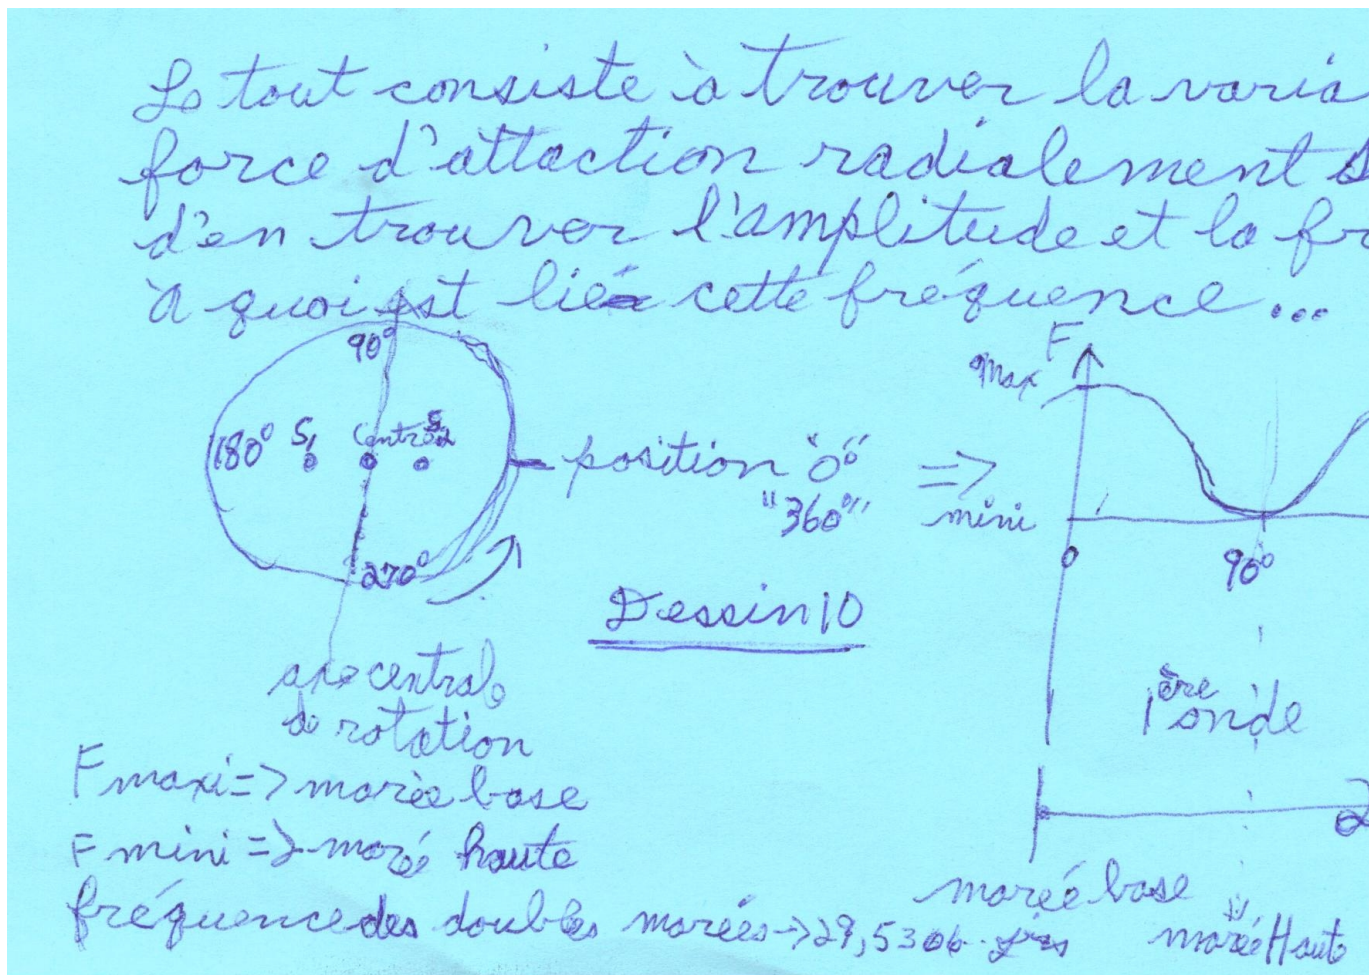 Le tout consiste à trouver la varia
force d'attaction radialement
d'en trouver l'amplitude et la fr
à quoi est liée cette fréquence...
90°
180° S1 Centre S2
270°
position "0°"
"360°"
=>
F
Max
mini
0
90°
Dessin 10
axe central
de rotation
1ère onde
2
F maxi => marée base
F mini => maré haute
fréquence des doubles marées -> 29,5306 jrs
marée base
marée Haute